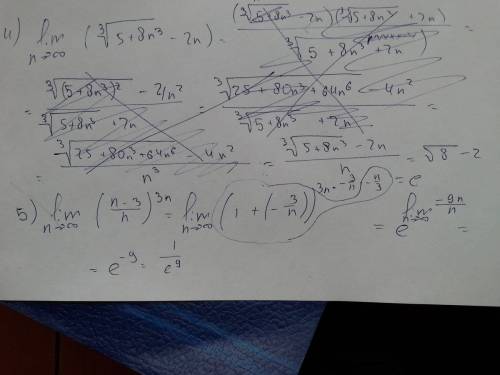 4) lim n→∞ (∛(5+8n³) - 2n) = (∛(5+8n³) - 2n)(∛(5+8n³) + 2n) / (∛(5+8n³) + 2n) =
= (∛((5+8n³)²) - 4n²) / (∛(5+8n³) + 2n) = (∛(25+80n³+64n⁶) - 4n²) / (∛(5+8n³) + 2n) =
= (∛(25+80n³+64n⁶) - 4n²) / n³ = (∛(5+8n³) - 2n) / n = √8 - 2
5) lim n→∞ ((n-3)/n)^(3n) = lim n→∞ (1 + (-3/n))^(3n · -3/n · -n/3) = e
= e^(lim n→∞ -9n/n) =
= e⁻⁹ = 1/e⁹